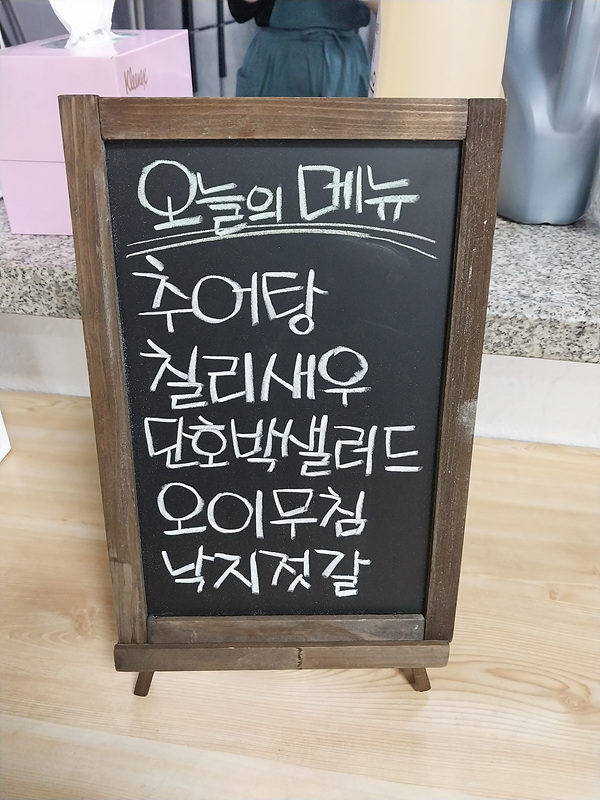 Kleenex
오늘의 메뉴
추어탕
칠리새우
단호박샐러드
오이무침
낙지젓갈